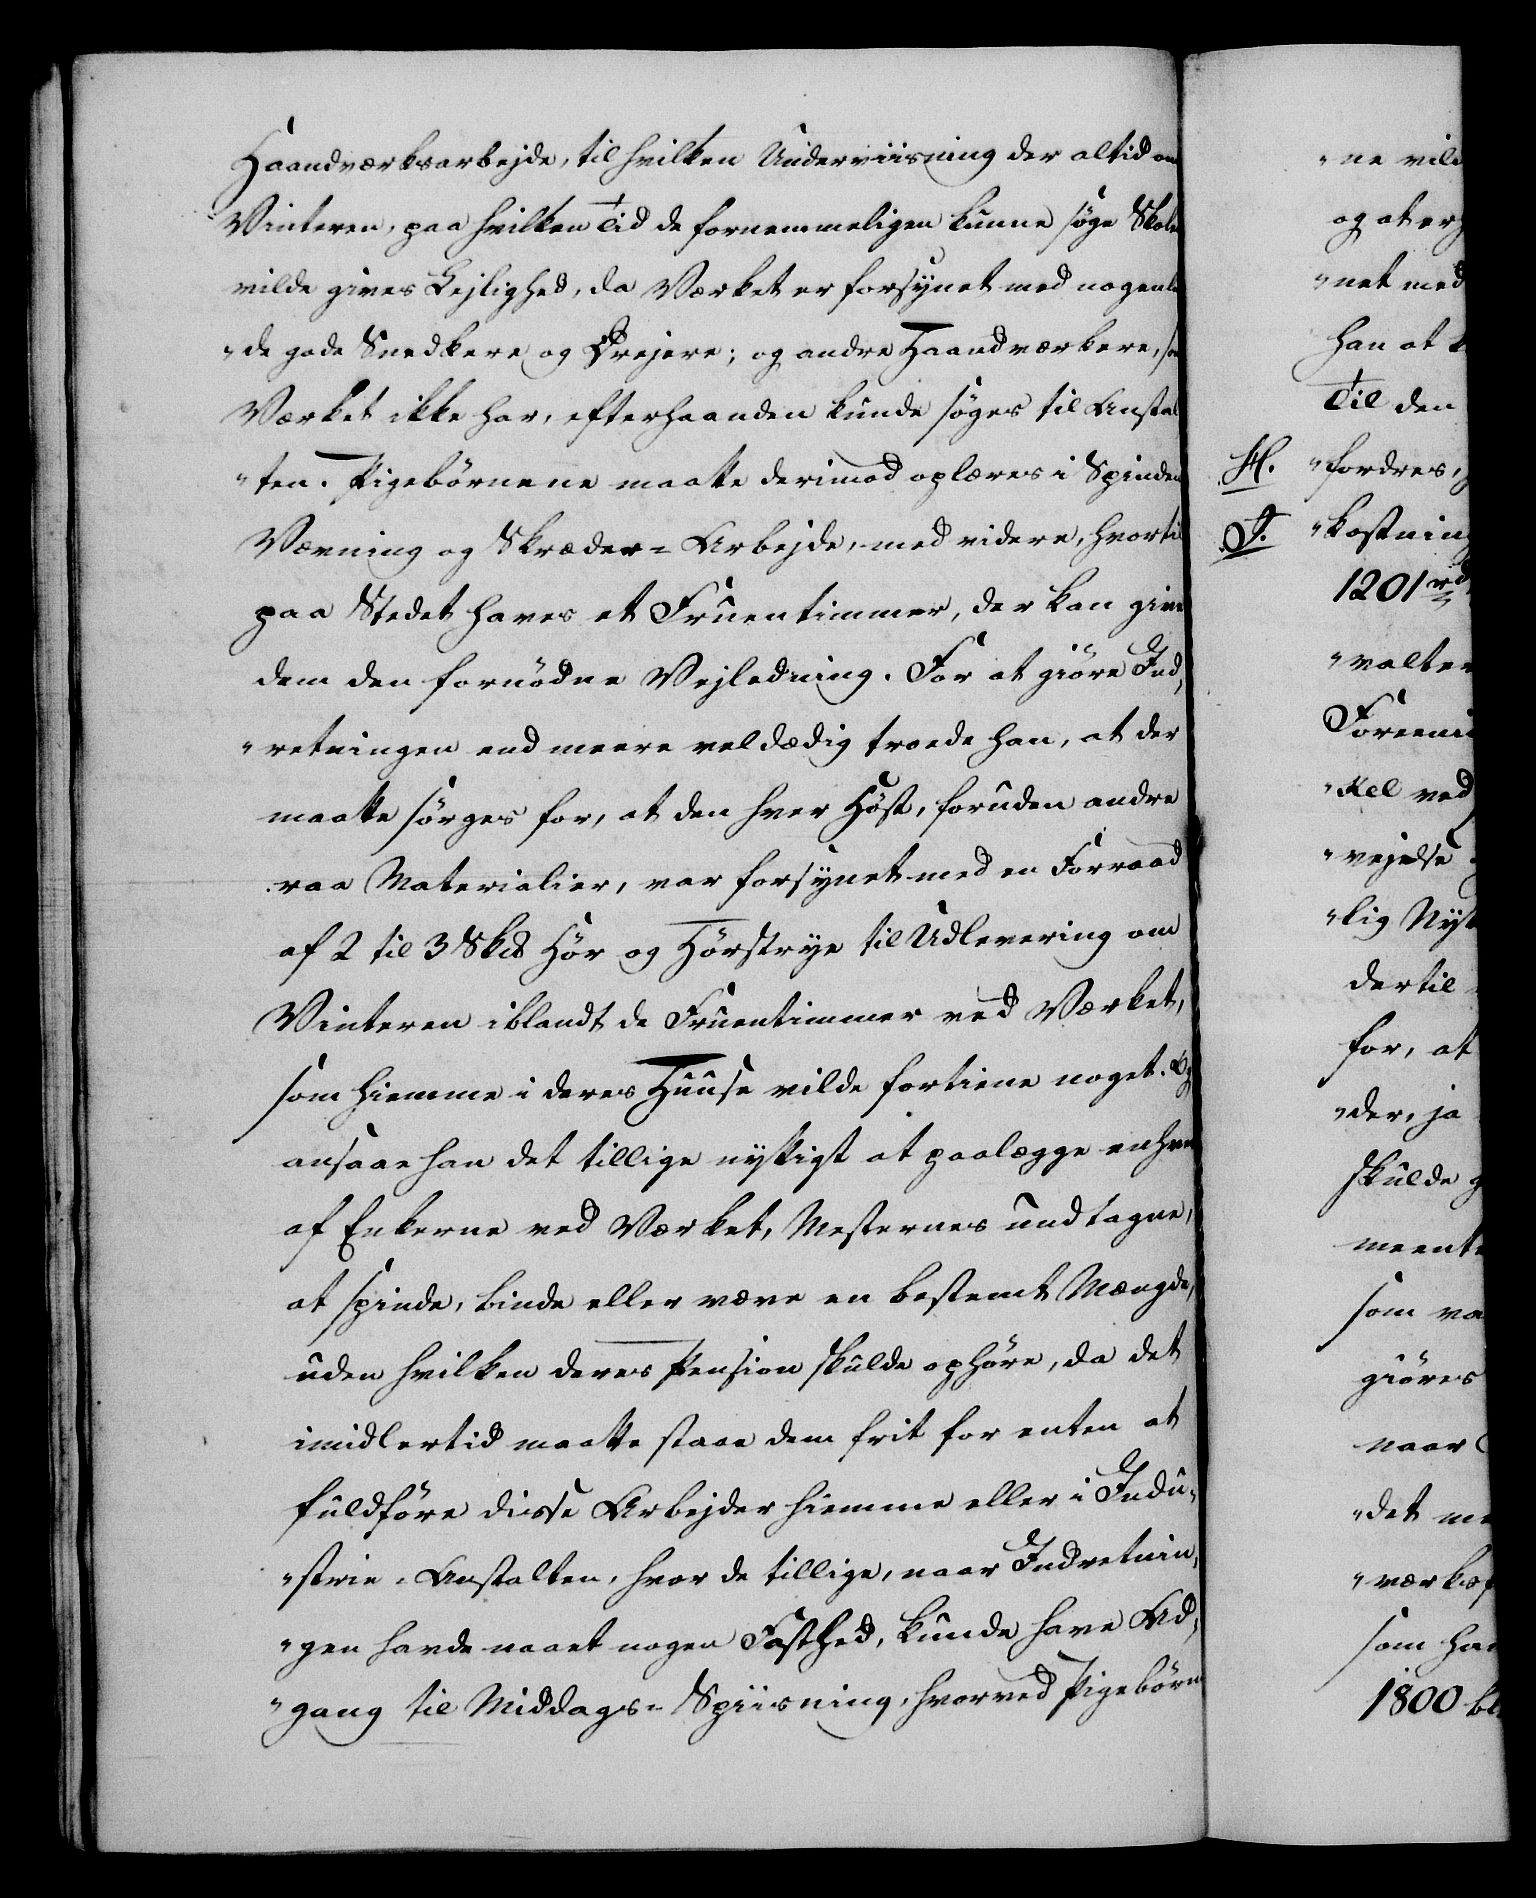 Haandværksarbejde, til hvilken Underviisning der altid om
Vinteren, paa hvilken Tid de fornemmeligen kunne søge Skole
vilde gives Lejlighed, da Værket er forsynet med nogenle
"de gode Snedkere og Drejere; og andre Haandværkere, som
Værket ikke har, efterhaanden kunde søges til Anstal
"ten. Pigebörnene maatte derimod oplæres i Spinden
Vævning og Skræder=Arbejde, med videre, hvortil
paa Stedet haves et Fruentimmer, der kan give
dem den fornödne Vejledning. For at giöre Ind,
"retningen end meere veldædig troede han, at der
maatte sörges for, at den hver Höst, foruden andre
raa Materialier, var forsynet med en Forraad
af 2 til 3 Sk℔ Hör og Hörstrye til Udlevering om
Vinteren iblandt de Fruentimmer ved Værket,
som hiemme i deres Huuse vilde fortiene noget. Og
ansaae han det tillige nyttigt at paalægge enhver
af Enkerne ved Værket, Mesternes undtagne,
at spinde, binde eller væve en bestemt Mængde,
uden hvilken deres Pension skulde ophöre, da det
imidlertid maatte staae dem frit for enten at
fuldföre disse Arbejder hiemme eller i Indu,
"strie=Anstalten, hvor de tillige, naar Indretnin,
"gen havde naaet nogen Fasthed, kunde have Ad,
"gang til Middags=Spiisning, hvorved Pigebörn
"ne vild
og at erh
"net med
han at
Til den
H. "fordres,
J. "kostning
1201 rd
"valter
Foreeni
"kel ved
"vejelse
"lig Nyt
dertil
for, at
"der, ja
skulde g
meente
som va
giöres
naar
"det me
"værks
som han
1800 bl